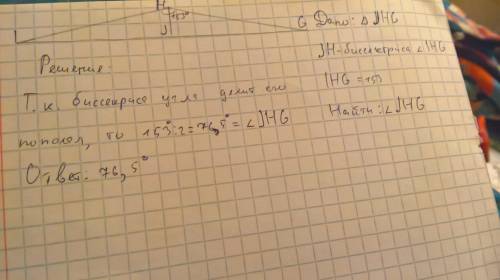 H
153°
I J G Дано: △ JHG
Решение: JH-биссектриса ∠IHG
IHG = 153
Т. к. биссектриса угла делит его Найти: ∠JHG
пополам, то 153:2=76,5°=∠JHG
Ответ: 76,5°